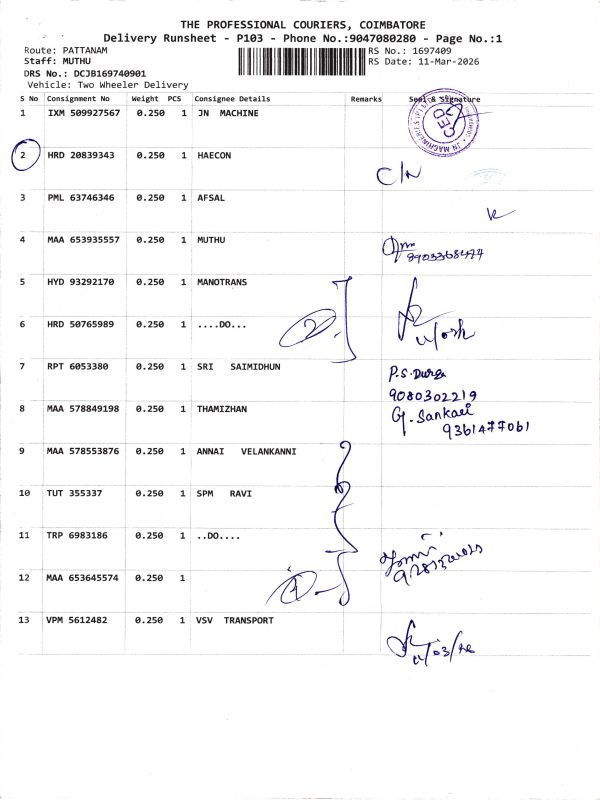 THE PROFESSIONAL COURIERS, COIMBATORE
Delivery Runsheet - P103 - Phone No.:9047080280 - Page No.:1
Route: PATTANAM RS No.: 1697409
Staff: MUTHU RS Date: 11-Mar-2026
DRS No.: DCJB169740901
Vehicle: Two Wheeler Delivery
S No Consignment No Weight PCS Consignee Details Remarks Seal & Signature
1 IXM 509927567 0.250 1 JN MACHINE
2 HRD 20839343 0.250 1 HAECON
C/N
3 PML 63746346 0.250 1 AFSAL
4 MAA 653935557 0.250 1 MUTHU
8903368474
5 HYD 93292170 0.250 1 MANOTRANS
6 HRD 50765989 0.250 1 ....DO...
2
7 RPT 6053380 0.250 1 SRI SAIMIDHUN P.S.Durga
9080302219
8 MAA 578849198 0.250 1 THAMIZHAN G. Sankari
9361477061
9 MAA 578553876 0.250 1 ANNAI VELANKANNI
10 TUT 355337 0.250 1 SPM RAVI
11 TRP 6983186 0.250 1 ..DO....
12 MAA 653645574 0.250 1
4
13 VPM 5612482 0.250 1 VSV TRANSPORT